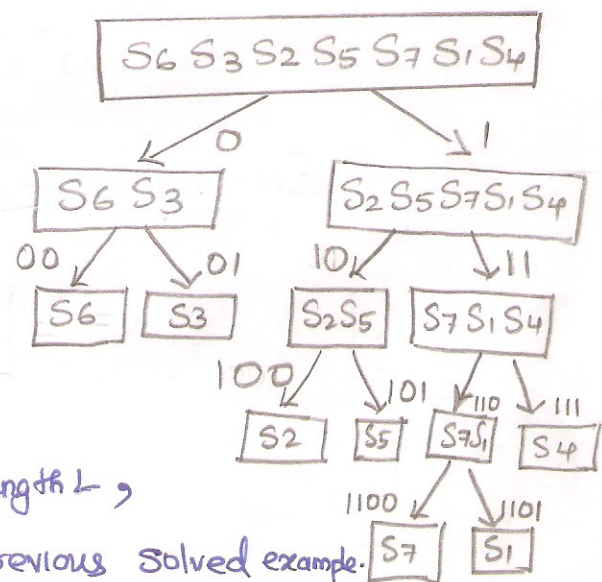 S6 S3 S2 S5 S7 S1 S4
0 1
S6 S3 S2 S5 S7 S1 S4
00 01 10 11
S6 S3 S2 S5 S7 S1 S4
100 101 110 111
S2 S5 S7 S1 S4
ngth L ,
1100 1101
revious solved example.
S7 S1